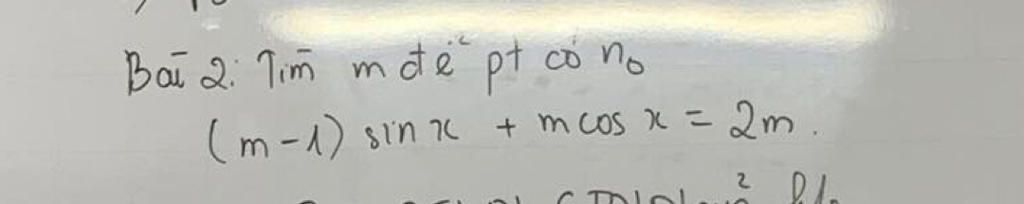 Bài 2: Tìm m để pt có n₀
(m-1) sin x + m cos x = 2m.